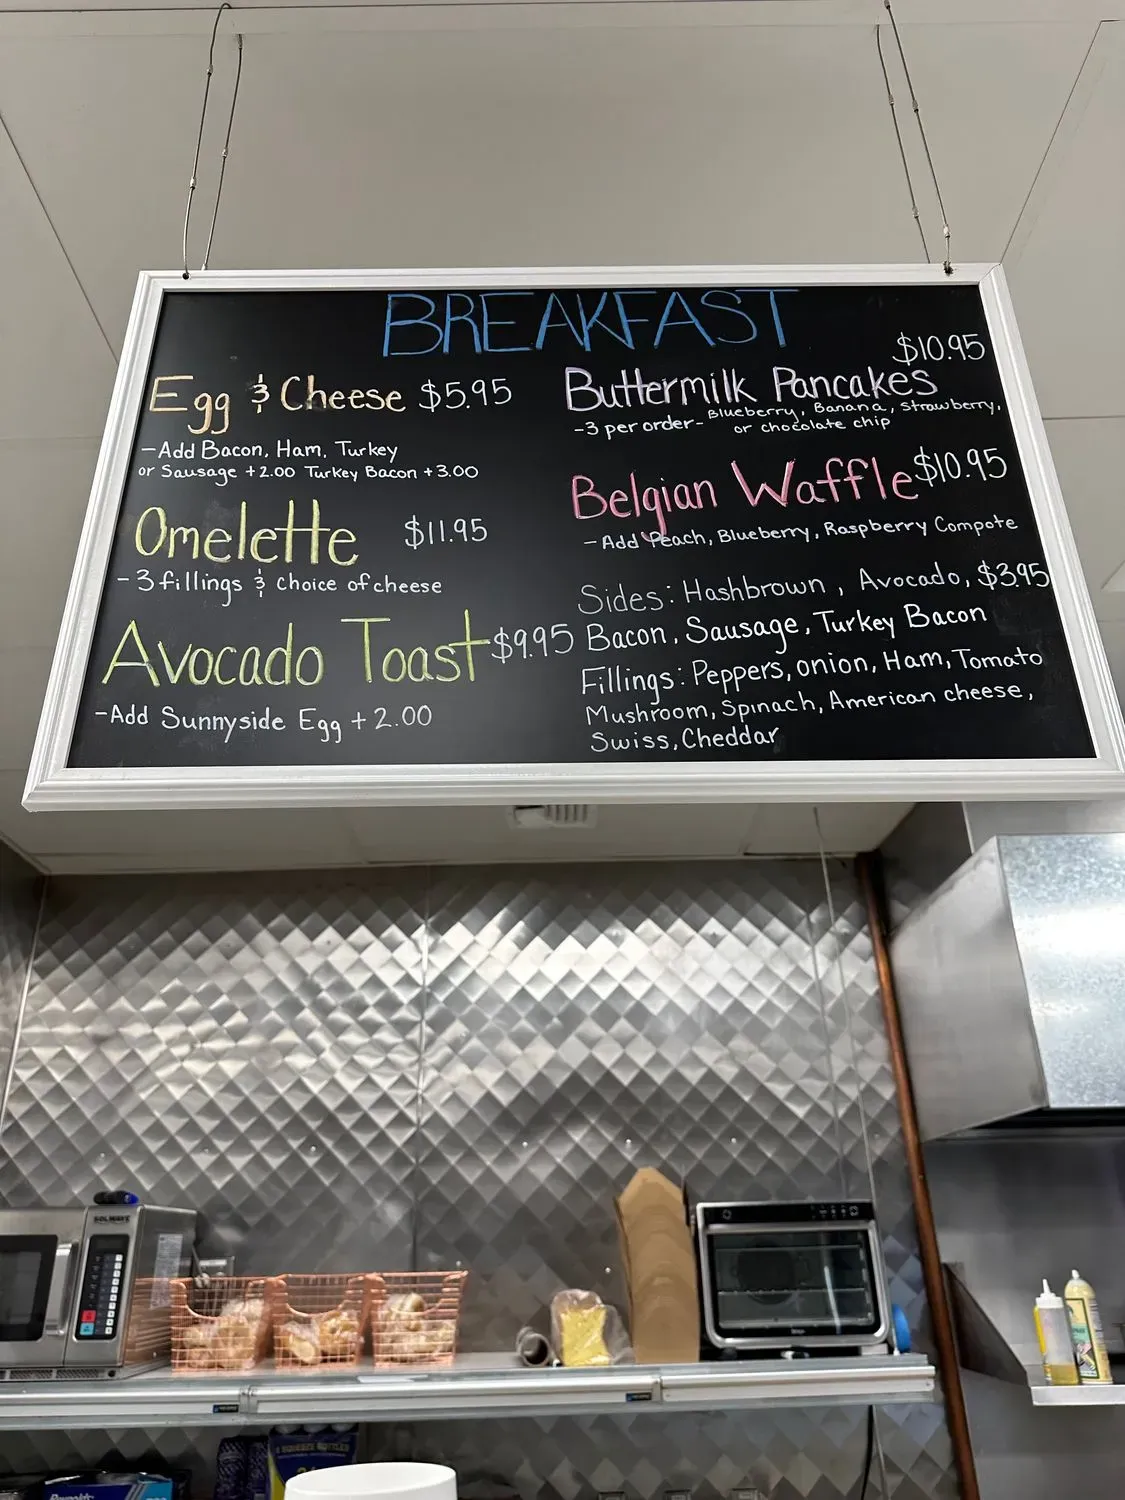 BREAKFAST
Egg & Cheese $5.95
-Add Bacon, Ham, Turkey
or Sausage +2.00 Turkey Bacon +3.00
Omelette $11.95
-3 fillings & choice of cheese
Avocado Toast $9.95
-Add Sunnyside Egg +2.00
$10.95
Buttermilk Pancakes
-3 per order- Blueberry, Banana, Strawberry,
or chocolate chip
Belgian Waffle $10.95
-Add Peach, Blueberry, Raspberry Compote
Sides: Hashbrown, Avocado, $3.95
Bacon, Sausage, Turkey Bacon
Fillings: Peppers, onion, Ham, Tomato
Mushroom, Spinach, American cheese,
Swiss, Cheddar
SOLWAVE
Reynolds